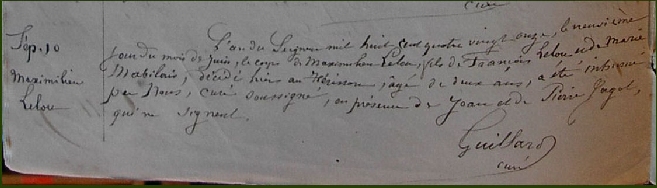 curé
Sép. 10
Maximilien
Lelou
L'an du Seigneur mil huit cent quatre vingt onze, le neuvième
jour du mois de juin, le corps de Maximilien Lelou, fils de François Lelou et de Marie
Mabilais, décédé hier au Hérisson, âgé de deux ans, a été inhumé
par Nous, curé soussigné, en présence de Jean et de Pierre
qui ne signent.
Guillard
curé